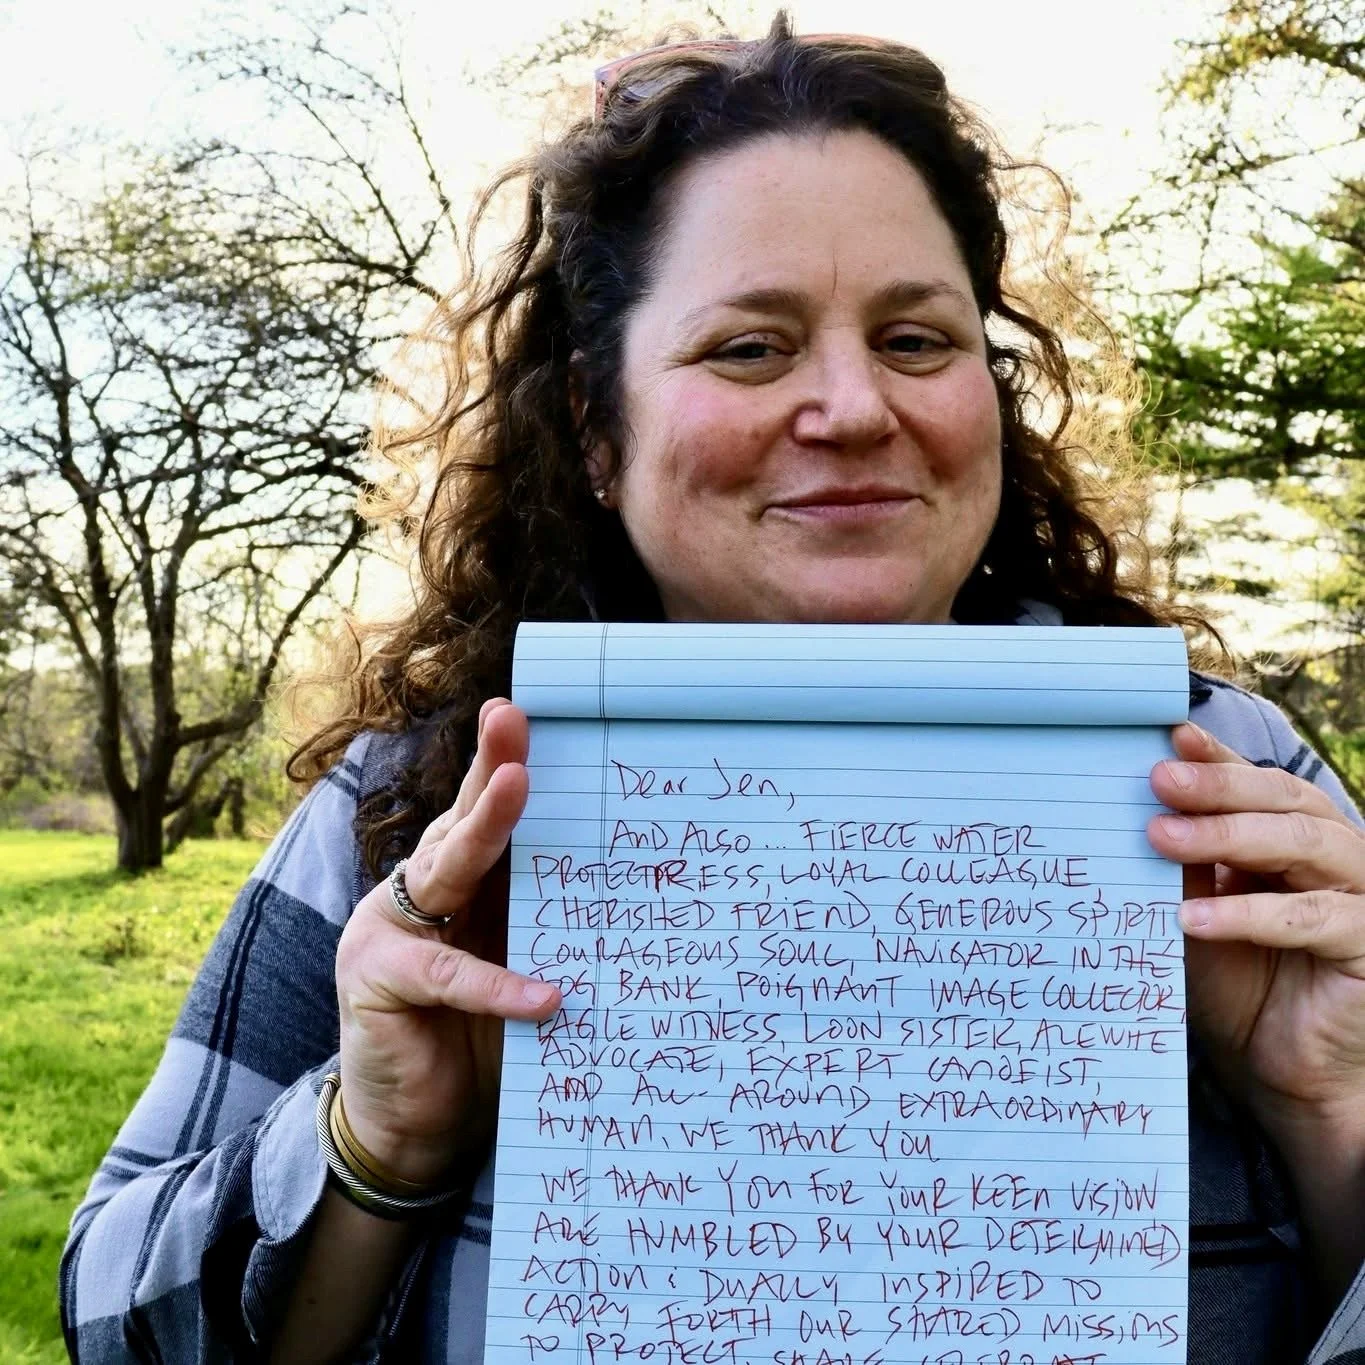 Dear Jen,
AND ALSO... FIERCE WATER
PROTECTRESS, LOYAL COLLEAGUE,
CHERISHED FRIEND, GENEROUS SPIRIT
COURAGEOUS SOUL, NAVIGATOR IN THE
FOG BANK, POIGNANT IMAGE COLLECTOR,
EAGLE WITNESS, LOON SISTER, ALEWIFE
ADVOCATE, EXPERT CANOEIST,
AND ALL-AROUND EXTRAORDINARY
HUMAN, WE THANK YOU
WE THANK YOU FOR YOUR KEEN VISION
ARE HUMBLED BY YOUR DETERMINED
ACTION & DUALLY INSPIRED TO
CARRY FORTH OUR SHARED MISSIONS
TO PROTECT, SHARE